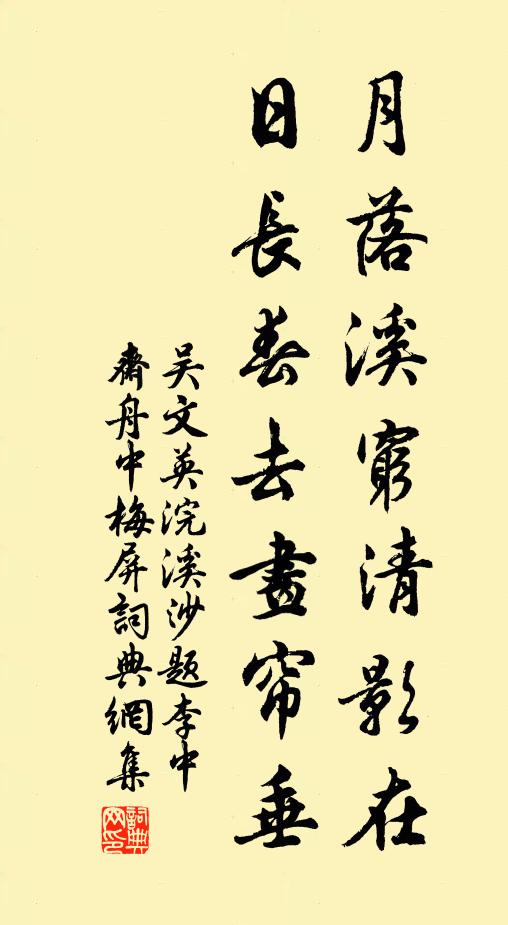 月落溪窮清影在
日長春去畫帘垂
吴文英浣溪沙题李中
齋舟中梅屏詞典網集
詞典网印